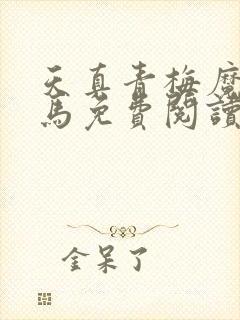 天真青梅魔
馬免費閱讀
金呆了